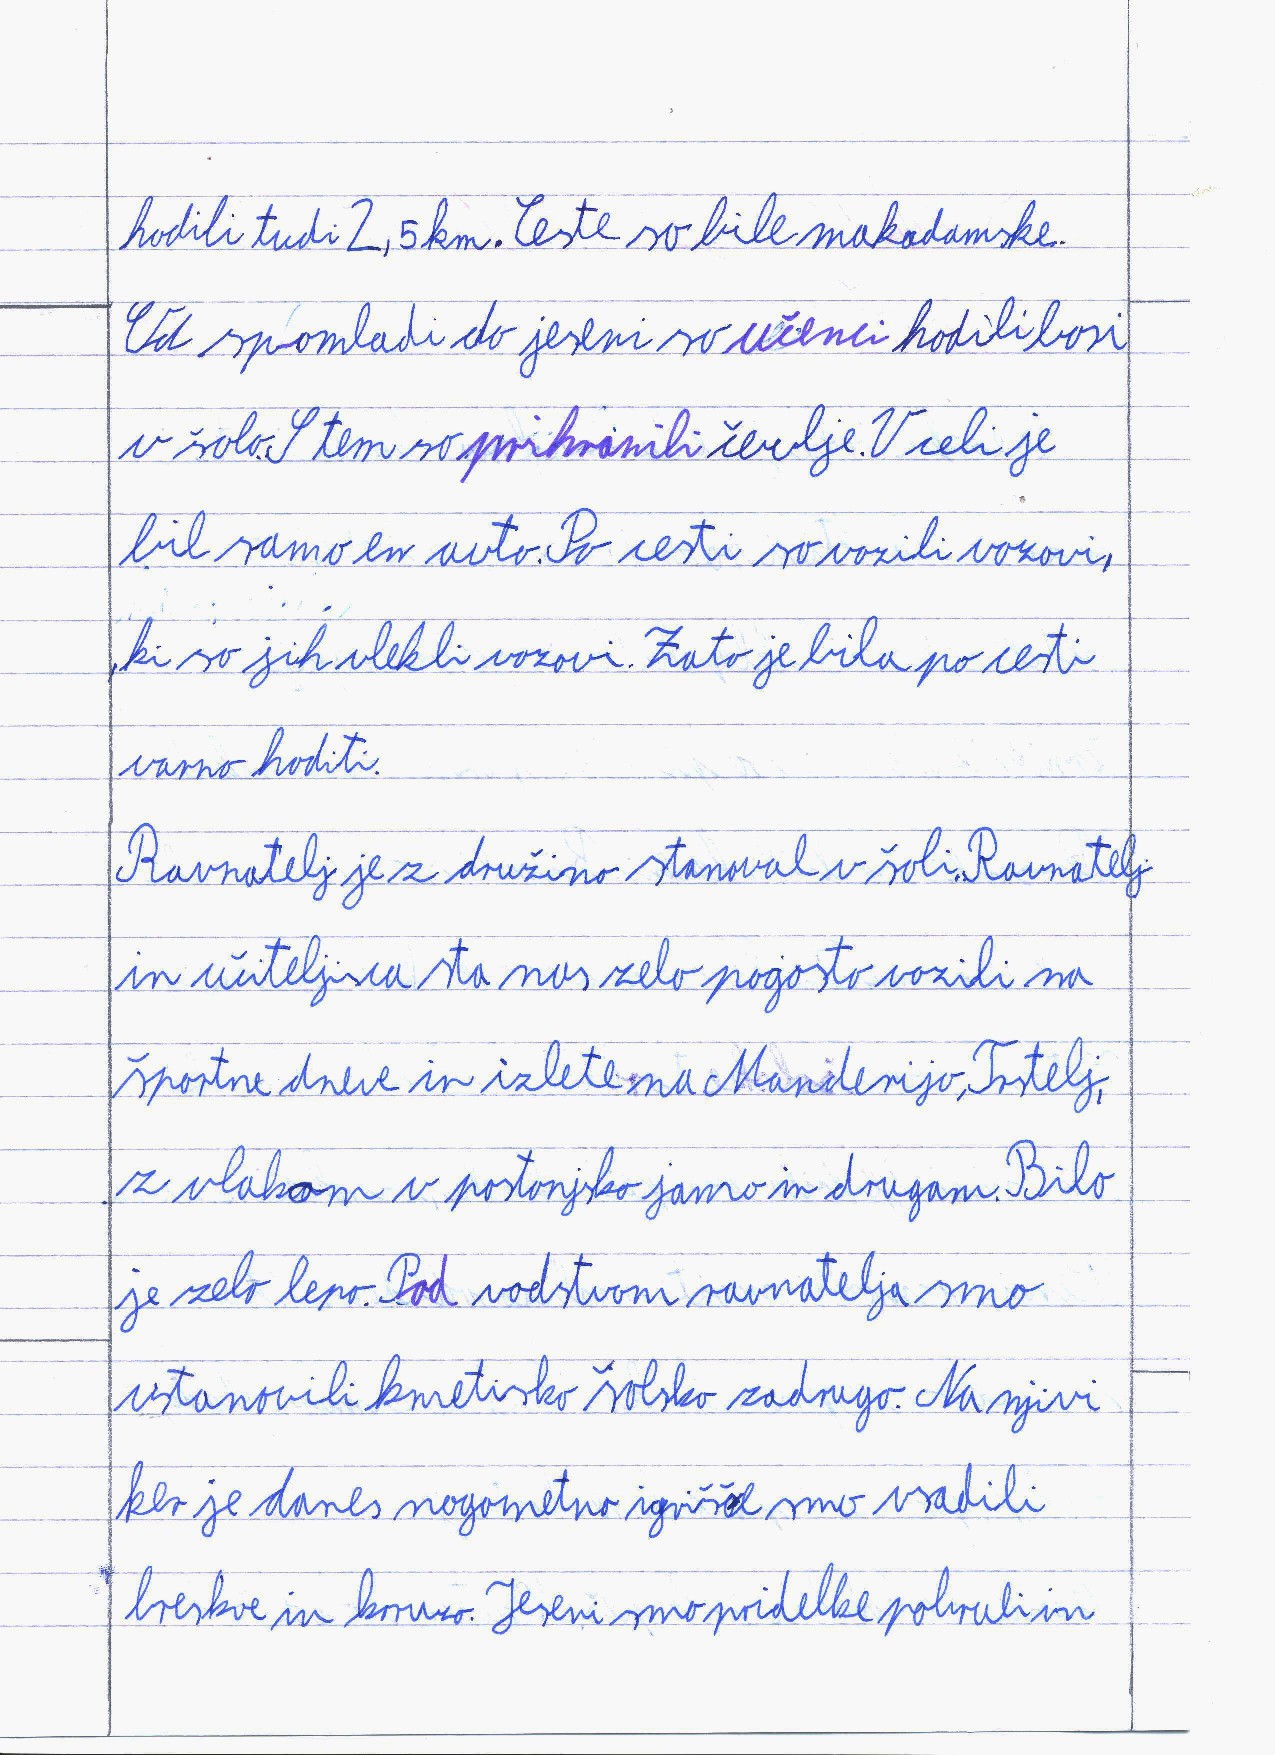 hodili tudi 2,5 km. Ceste so bile makadamske.
Od spomladi do jeseni so učenci hodili bosi
v šolo. S tem so prihranili čevlje. V celi je
bil samo en avto. Po cesti so vozili vozovi,
ki so jih vlekli vozovi. Zato je bila po cesti
varno hoditi.
Ravnatelj je z družino stanoval v šoli. Ravnatelj
in učiteljica sta nas zelo pogosto vozili na
športne dneve in izlete na Manderijo, Trstelj,
z vlakom v postonjsko jamo in drugam. Bilo
je zelo lepo. Pod vodstvom ravnatelja smo
ustanovili kmetisko šolsko zadrugo. Na njivi
ker je danes nogometno igrišče smo vsadili
breskve in koruzo. Jeseni smo pridelke pobrali in